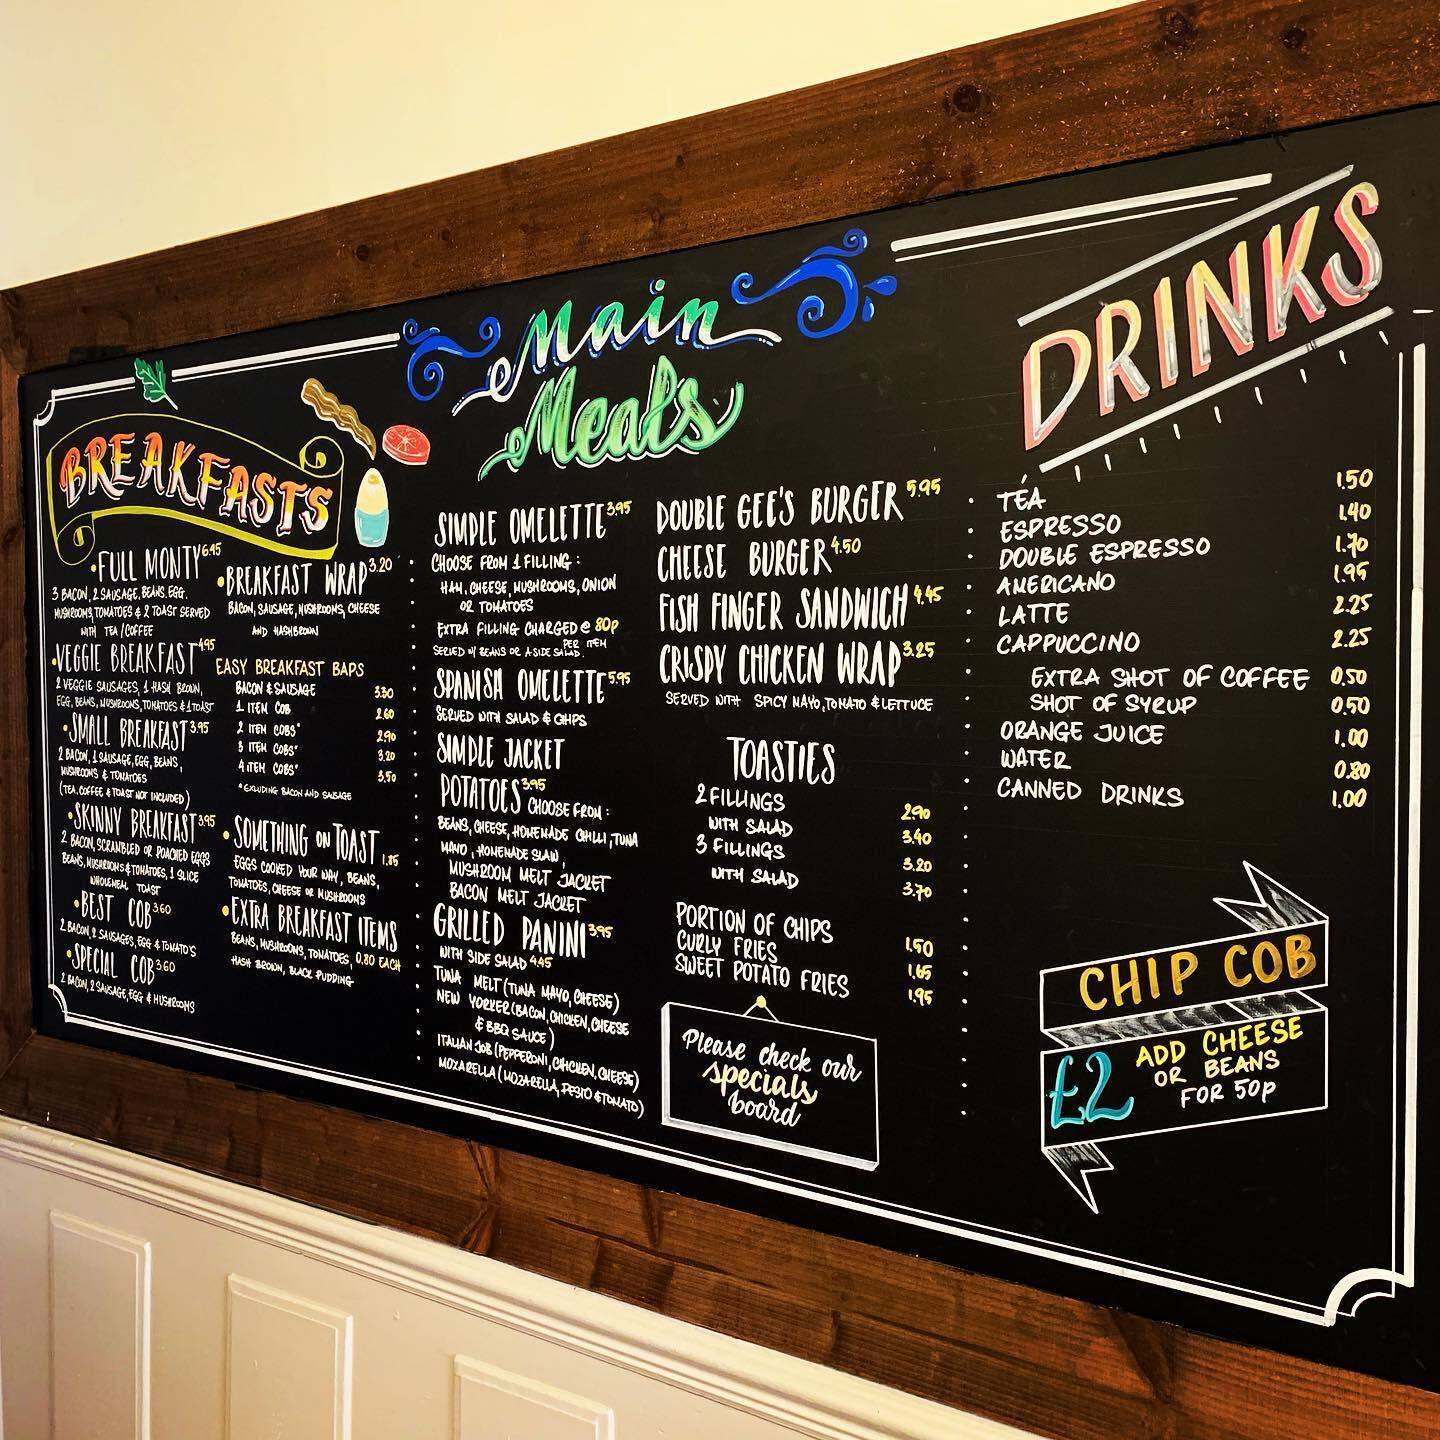 BREAKFASTS
FULL MONTY 6.45
3 BACON, 2 SAUSAGE, BEANS, EGG.
MUSHROOMS, TOMATOES & 2 TOAST SERVED
WITH TEA/COFFEE
VEGGIE BREAKFAST 4.95
2 VEGGIE SAUSAGES, 1 HASH BROWN,
EGG, BEANS, MUSHROOMS, TOMATOES & 1 TOAST
SMALL BREAKFAST 3.95
2 BACON, 1 SAUSAGE, EGG, BEANS,
MUSHROOMS & TOMATOES
(TEA, COFFEE & TOAST NOT INCLUDED)
SKINNY BREAKFAST 3.95
2 BACON, SCRAMBLED OR POACHED EGGS
BEANS, MUSHROOMS & TOMATOES, 1 SLICE
WHOLEMEAL TOAST
BEST COB 3.60
2 BACON, 2 SAUSAGES, EGG & TOMATO'S
SPECIAL COB 3.60
2 BACON, 2 SAUSAGE, EGG & MUSHROOMS
BREAKFAST WRAP 3.20
BACON, SAUSAGE, MUSHROOMS, CHEESE
AND HASHBROWN
EASY BREAKFAST BAPS
BACON & SAUSAGE 3.30
1 ITEM COB 2.60
2 ITEM COBS* 2.90
3 ITEM COBS* 3.20
4 ITEM COBS* 3.50
* EXLUDING BACON AND SAUSAGE
SOMETHING ON TOAST 1.85
EGGS COOKED YOUR WAY, BEANS,
TOMATOES, CHEESE OR MUSHROOMS
EXTRA BREAKFAST ITEMS
BEANS, MUSHROOMS, TOMATOES, 0.80 EACH
HASH BROWN, BLACK PUDDING
Main
Meals
SIMPLE OMELETTE 3.95
CHOOSE FROM 1 FILLING :
HAM, CHEESE, MUSHROOMS, ONION
OR TOMATOES
EXTRA FILLING CHARGED @ 80p
PER ITEM
SERVED W/ BEANS OR A SIDE SALAD.
SPANISH OMELETTE 5.95
SERVED WITH SALAD & CHIPS
SIMPLE JACKET
POTATOES 3.95 CHOOSE FROM :
BEANS, CHEESE, HOMEMADE CHILLI, TUNA
MAYO, HOMEMADE SLAW,
MUSHROOM MELT JACKET
BACON MELT JACKET
GRILLED PANINI 3.95
WITH SIDE SALAD 4.45
TUNA MELT (TUNA MAYO, CHEESE)
NEW YORKER (BACON, CHICKEN, CHEESE
& BBQ SAUCE)
ITALIAN JOB (PEPPERONI, CHICKEN, CHEESE)
MOZARELLA (MOZARELLA, PESTO & TOMATO)
DOUBLE GEE'S BURGER 5.95
CHEESE BURGER 4.50
FISH FINGER SANDWICH 4.45
CRISPY CHICKEN WRAP 3.25
SERVED WITH SPICY MAYO, TOMATO & LETTUCE
TOASTIES
2 FILLINGS 2.90
WITH SALAD 3.40
3 FILLINGS 3.20
WITH SALAD 3.70
PORTION OF CHIPS 1.50
CURLY FRIES 1.65
SWEET POTATO FRIES 1.95
Please check our
specials
board
DRINKS
TÉA 1.50
ESPRESSO 1.40
DOUBLE ESPRESSO 1.70
AMERICANO 1.95
LATTE 2.25
CAPPUCCINO 2.25
EXTRA SHOT OF COFFEE 0.50
SHOT OF SYRUP 0.50
ORANGE JUICE 1.00
WATER 0.80
CANNED DRINKS 1.00
CHIP COB
£2 ADD CHEESE
OR BEANS
FOR 50p